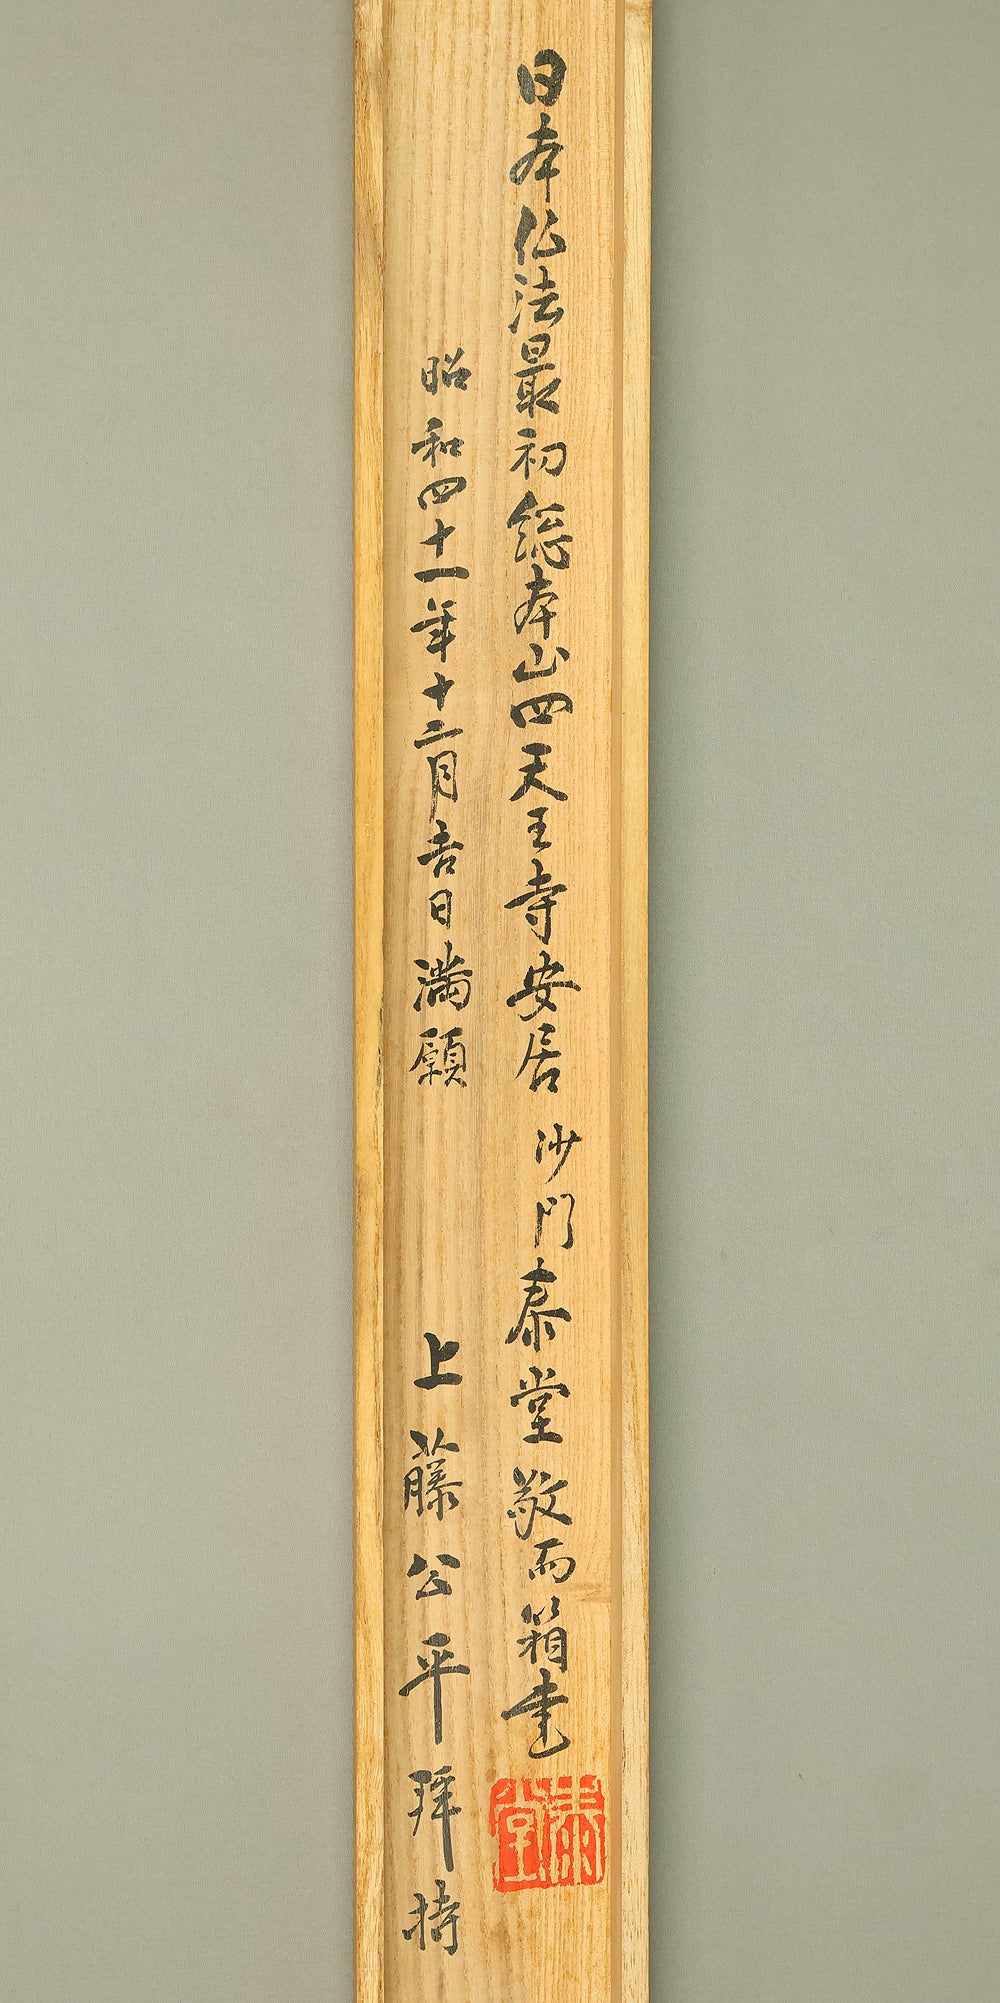 日本仏法最初総本山四天王寺安居 沙門泰堂敬而箱書
泰堂
昭和四十一年十二月吉日満願 上藤公平拝持